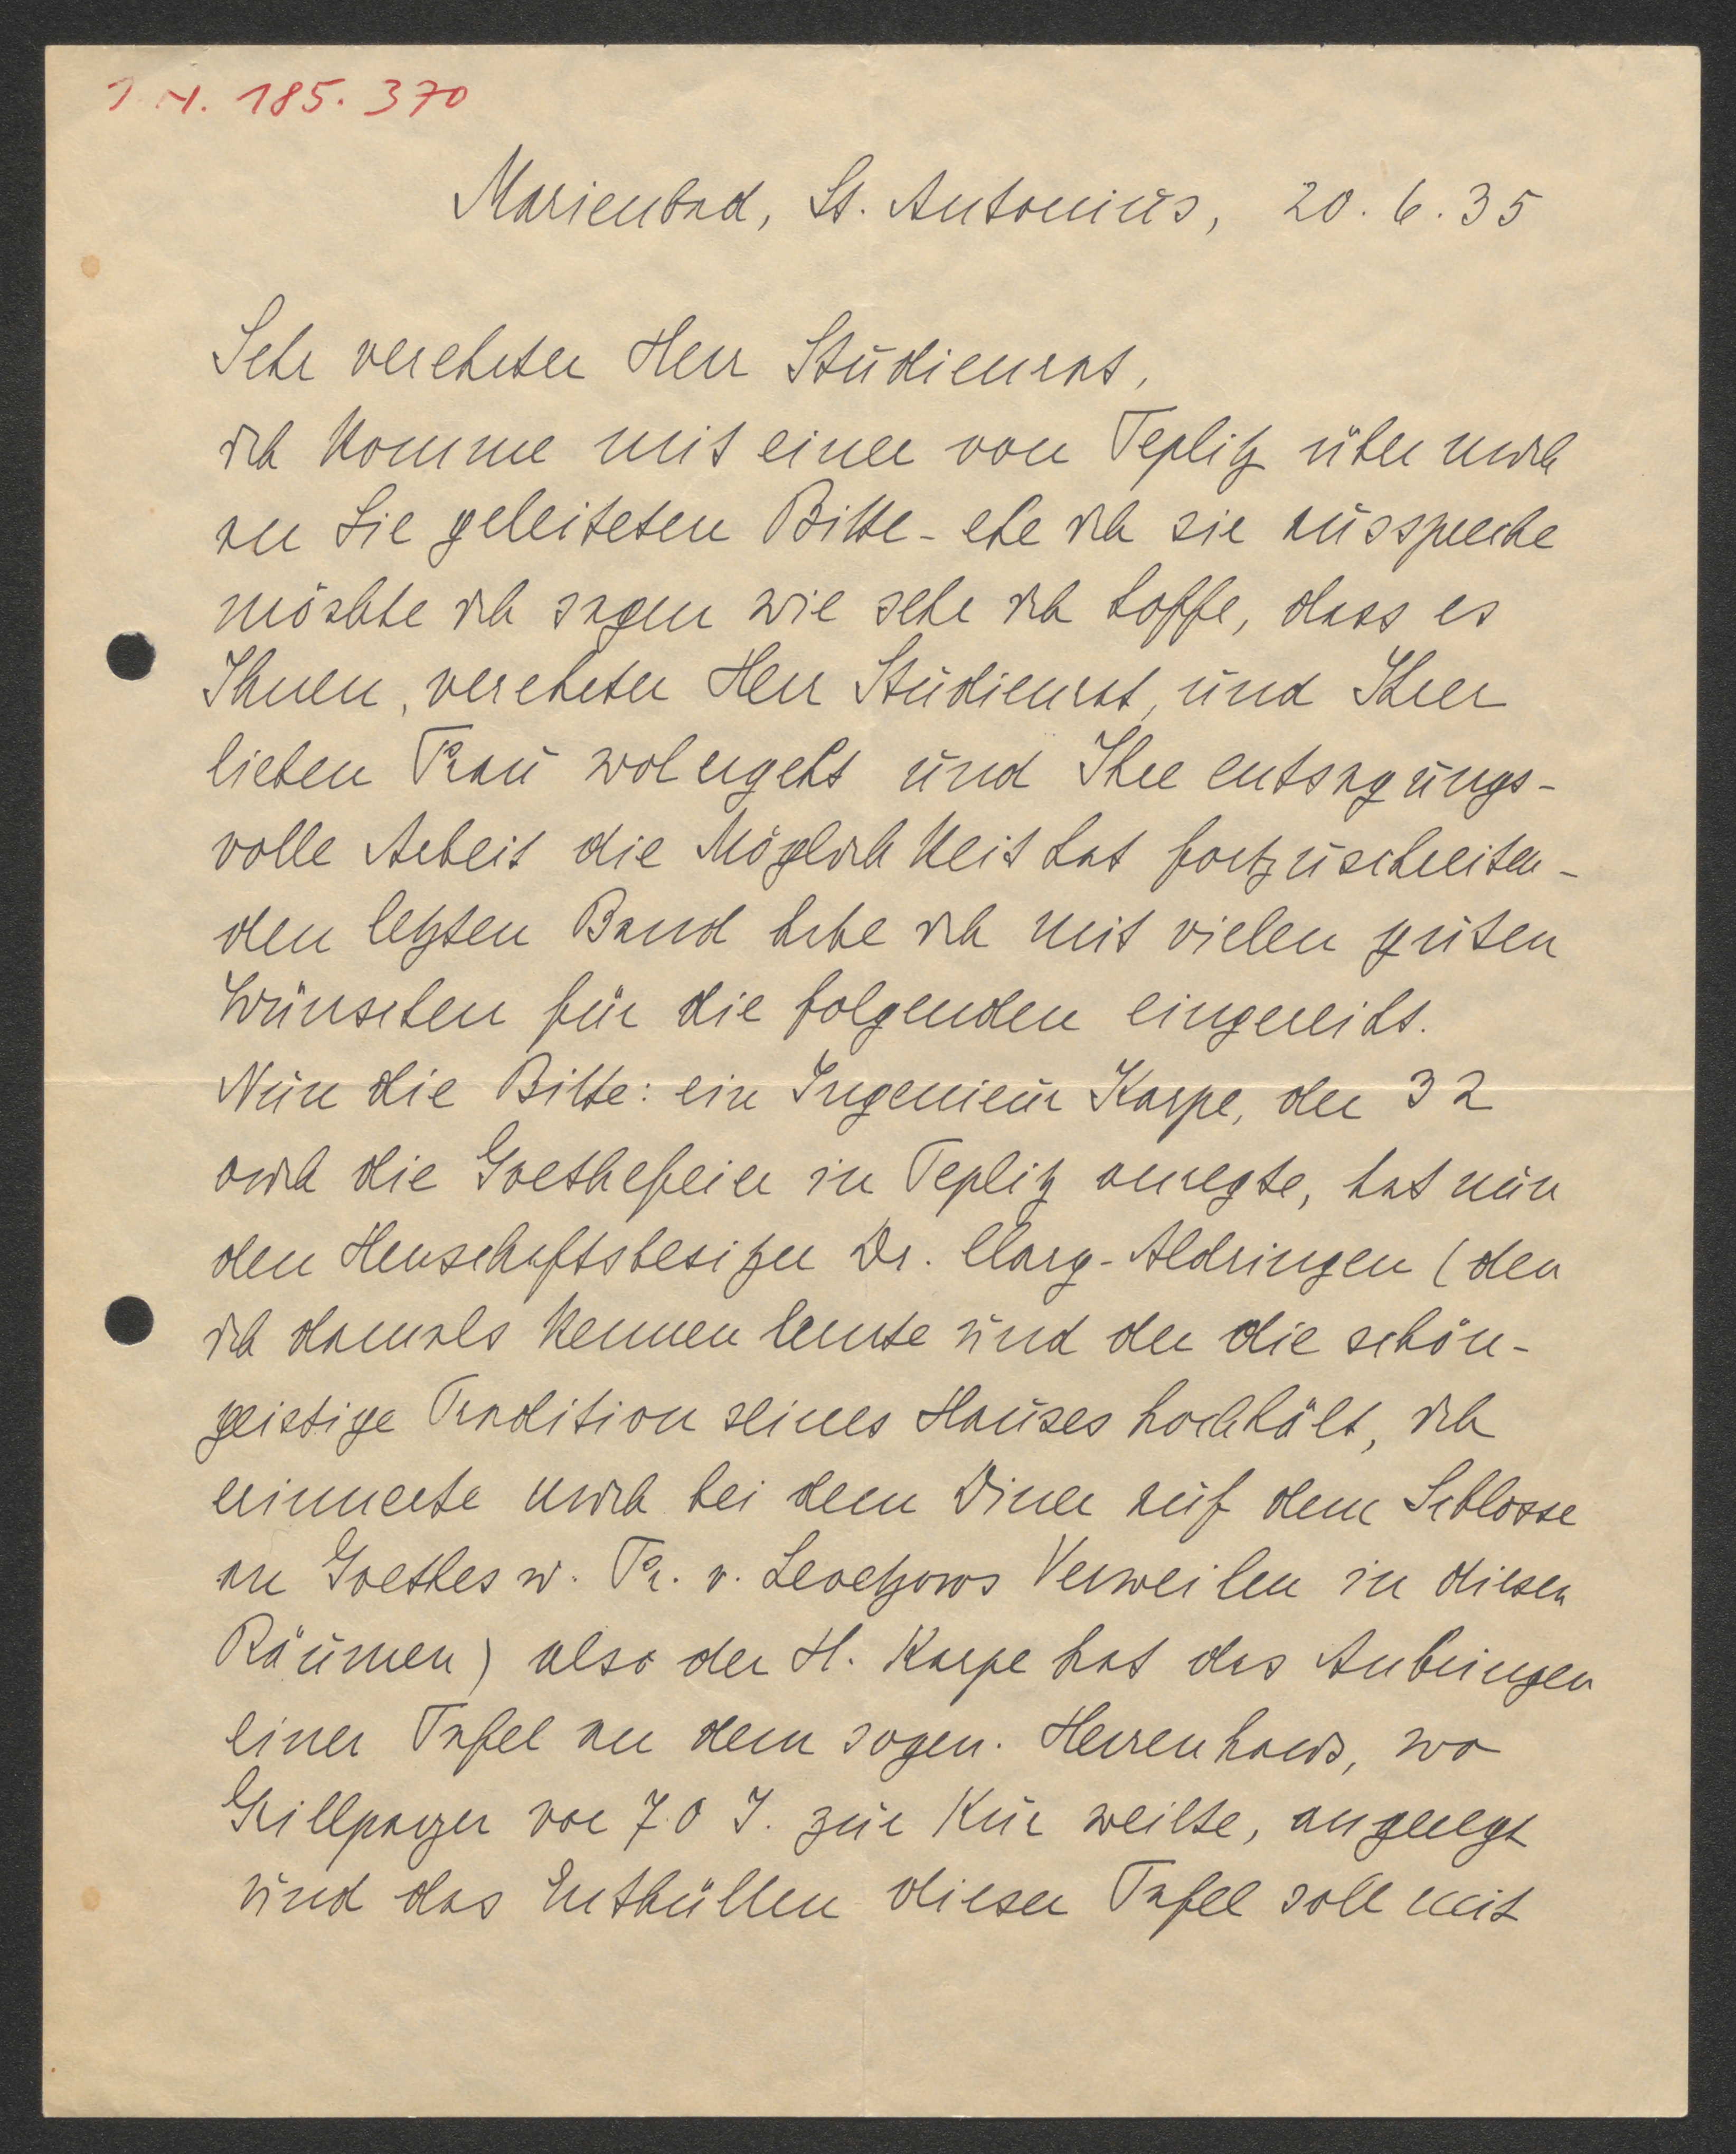 I.N. 185.370
Marienbad, St. Antonius, 20.6.35
Sehr verehrter Herr Studienrat,
ich komme mit einer von Teplitz über mich
an Sie geleiteten Bitte - ehe ich sie ausspreche
möchte ich sagen wie sehr ich hoffe, dass es
Ihnen, verehrter Herr Studienrat, und Ihrer
lieben Frau wol ergeht und Ihre entsagungs-
volle Arbeit die Möglichkeit hat fortzuschreiten -
den letzten Band habe ich mit vielen guten
Wünschen für die folgenden eingereiht.
Nun die Bitte: ein Ingenieur Karpe, der 32
auch die Goethefeier in Teplitz anregte, hat nun
den Herrschaftsbesitzer Dr. Clary-Aldringen (den
ich damals kennen lernte und der die schön-
geistige Tradition seines Hauses hochhält, ich
erinnerte mich bei dem Diner auf dem Schlosse
an Goethes u. Fr. v. Levetzows Verweilen in diesen
Räumen) also der H. Karpe hat das Anbringen
einer Tafel an dem sogen. Herrenhaus, wo
Grillparzer vor 70 J. zur Kur weilte, angeregt
und das Enthüllen dieser Tafel soll mit